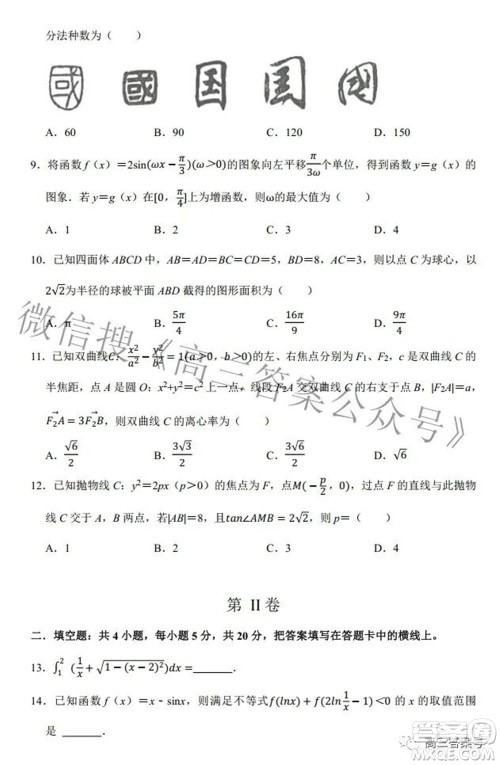 分法种数为（　　）
國 國 国 国 國
A．60　B．90　C．120　D．150
9．将函数 f（x）＝2sin(ωx−π/3)(ω＞0)的图象向左平移π/3ω个单位，得到函数 y＝g（x）的
图象．若 y＝g（x）在[0，π/4]上为增函数，则ω的最大值为（　　）
A．1　B．2　C．3　D．4
10．已知四面体 ABCD 中，AB＝AD＝BC＝DC＝5，BD＝8，AC＝3，则以点 C 为球心，以
2√2为半径的球被平面 ABD 截得的图形面积为（　　）
A．π　B．5π/4　C．16π/9　D．9π/4
11．已知双曲线C：x²/a²−y²/b²＝1(a＞0，b＞0)的左、右焦点分别为 F₁、F₂，c 是双曲线 C 的
半焦距，点 A 是圆 O：x²+y²＝c² 上一点，线段 F₂A 交双曲线 C 的右支于点 B，|F₂A|＝a，
F₂A→＝3F₂B→，则双曲线 C 的离心率为（　　）
A．√6/2　B．3√3/2　C．3√6/2　D．√6
12．已知抛物线 C：y²＝2px（p＞0）的焦点为 F，点M(−p/2，0)，过点 F 的直线与此抛物
线 C 交于 A，B 两点，若|AB|＝8，且tan∠AMB＝2√2，则 p＝（　　）
A．1　B．2　C．3　D．4
第 II 卷
二．填空题：共 4 小题，每小题 5 分，共 20 分，把答案填写在答题卡中的横线上。
13．∫₁²(1/x+√1−(x−2)²)dx＝______．
14．已知函数 f（x）＝x﹣sinx，则满足不等式f(lnx)+f(2ln1/x−1)＜0的 x 的取值范围
是 ______．
微信搜《高三答案公众号》
高三答案号